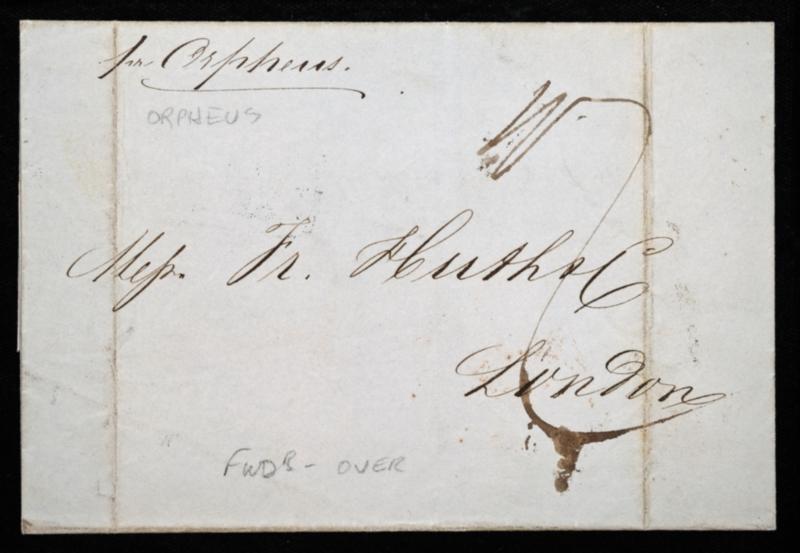 pr Orpheus.
ORPHEUS
Messrs. Fr. Huth & C
London
FWDR - OVER